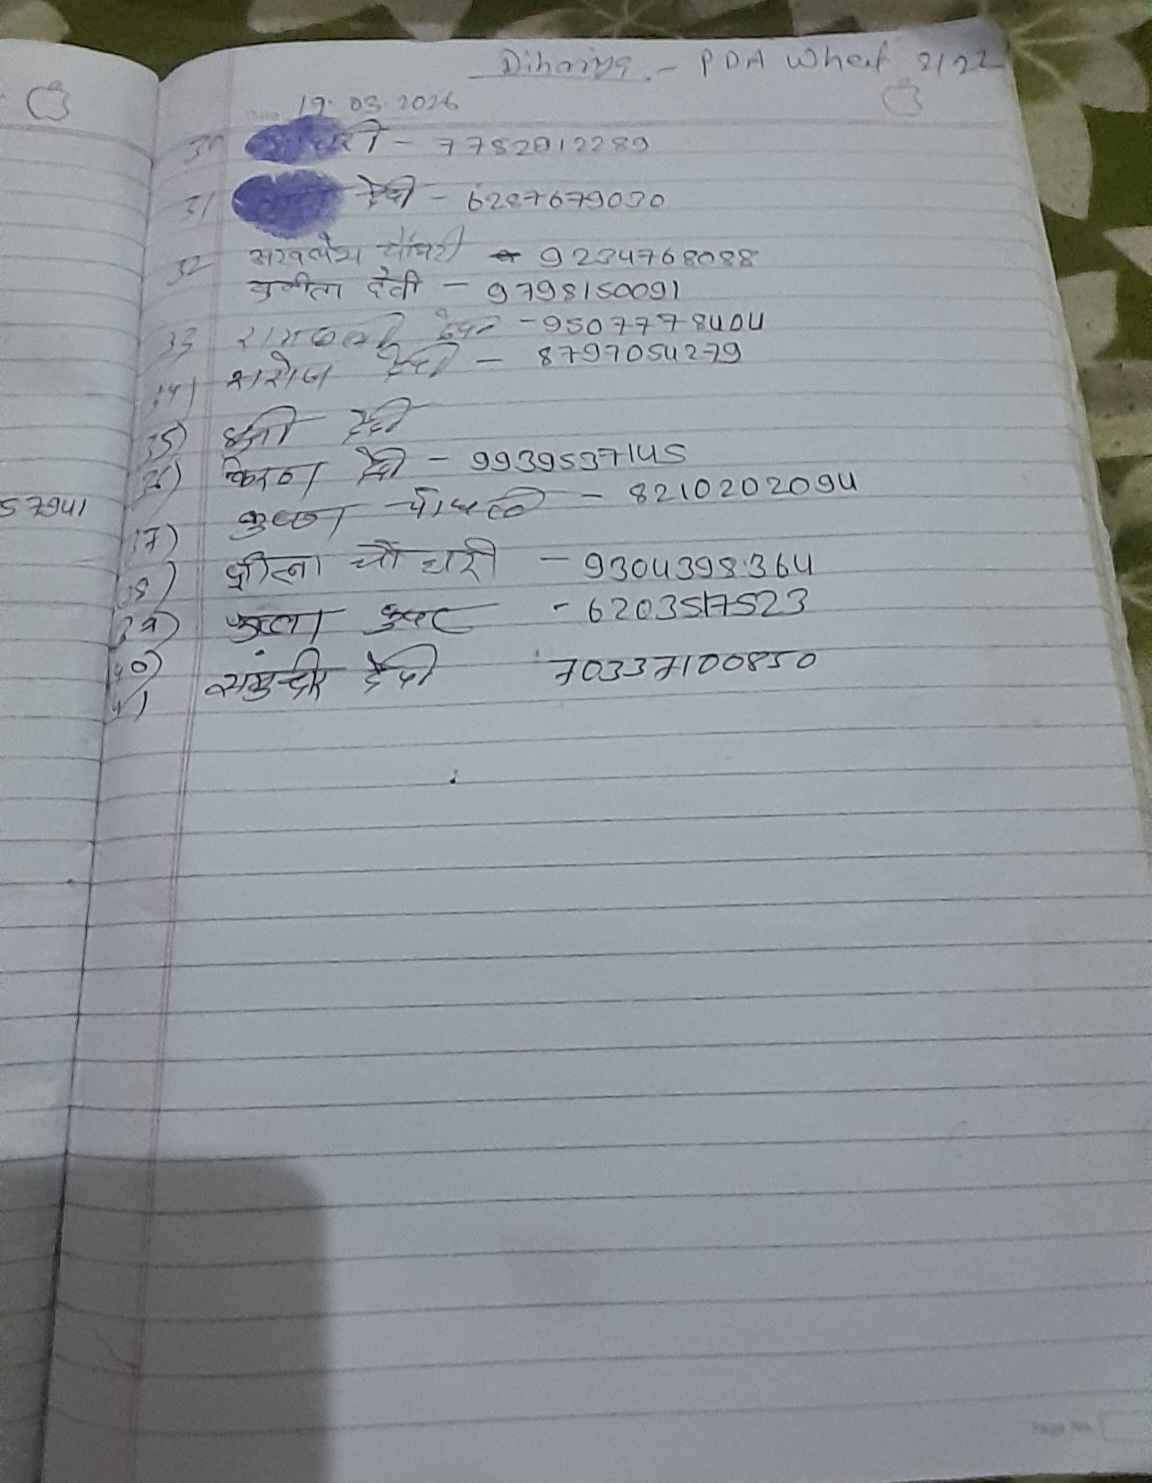 Dihariya - PDA Wheat 2/22
19.03.2026
30 - 7752012289
31 देवी - 6287679030
32 अखलेश चौधरी - 9234768088
सुनीता देवी - 9798150091
33 देवी - 9507778404
34) सरोज देवी - 8797054279
35) देवी
36) किरण देवी - 9939537145
57941
37) कृष्णा चौधरी - 8210202094
38) चौधरी - 9304398364
39) कुवर - 6203517523
40) समुन्द्री देवी 70337100850
41)